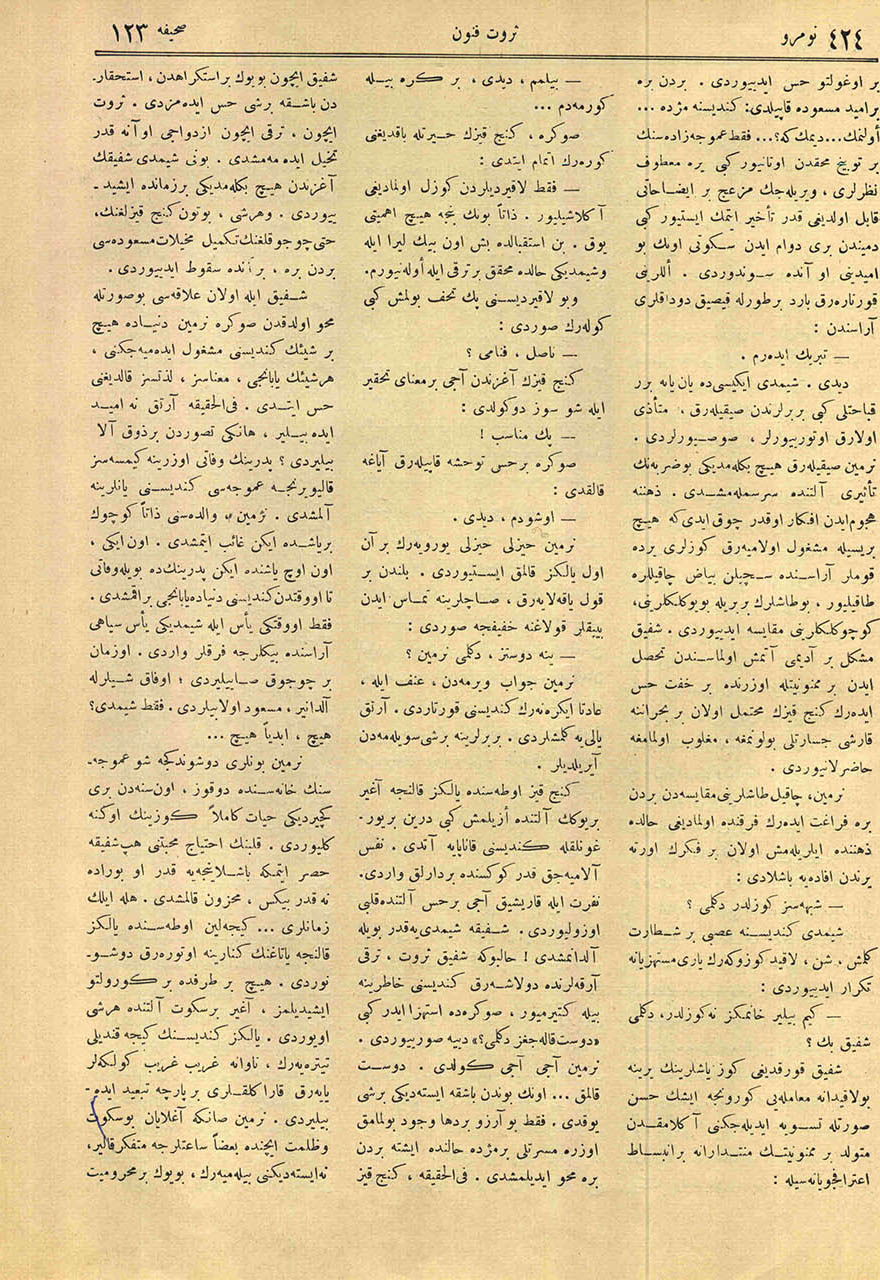 نومرو ٤٢٤
ثروت فنون
صحیفه ١٢٣
بر اوغولتو حس ایدییوردی . بردن بره
برامید مسعوده قاپیلدی: کندیسنه مژده ...
أولنمك...دیمك که؟... فقط عموجه‌زاده‌سنك
بر توبیخ محقدن اوتانیور کبی یره معطوف
نظرلری ، ویریله‌جك مزعج بر ایضاحاتی
قابل اولدیغی قدر تأخیر ایتمك ایستیور کبی
دمیندن بری دوام ایدن سکوتی اونك بو
امیدینی او آنده سوندوردی . أللرینی
قورتاره‌رق بارد برطورله قیصیق دوداقلری
آراسندن :
— تبریك ایده‌رم .
دیدی . شیمدی ایکیسی‌ده یان یانه برر
قباحتلی کبی بربرلرندن صیقیله‌رق ، متأذی
اولارق اوتورییورلر ، صوصیورلردی .
نرمین صیقیله‌رق هیچ بکله‌مدیکی بوضربه‌نك
تأثیری آلتنده سرسمله‌مشدی . ذهننه
هجوم‌ایدن افکار اوقدر چوق ایدی‌که هیچ
بریسیله مشغول اولامیه‌رق کوزلری یرده
قوملر آراسنده سچیلن بیاض چاقیللره
طاقیلیور ، بوطاشلرك بربریله بویوکلکلرینی،
کوچوکلکلرینی مقایسه ایدییوردی . شفیق
مشکل بر آدیمی آتمش اولماسندن تحصل
ایدن بر ممنونیتله اوزرنده بر خفت حس
ایده‌رك کنج قیزك محتمل اولان بر بحراننه
قارشی جسارتلی بولونمغه ، مغلوب اولمامغه
حاضرلانیوردی .
نرمین، چاقیل طاشلرینی مقایسه‌دن بردن
بره فراغت ایده‌رك فرقنده اولمادیغی حالده
ذهننده ایلریله‌مش اولان بر فکرك اورته
یرندن افاده‌یه باشلادی :
— شبهه‌سز کوزلدر دکلمی ؟
شیمدی کندیسنه عصبی بر شطارت
کلمش ، شن ، لاقید کوزوکه‌رك یاری مستهزیانه
تکرار ایدییوردی :
— کیم بیلیر خانمکز نه‌کوزلدر، دکلمی
شفیق بك ؟
شفیق قورقدیغی کوز یاشلرینك یرینه
بولاقیدانه معامله‌یی کورونجه ایشك حسن
صورتله تسویه ایدیله‌جکنی آکلامقدن
متولد بر ممنونیتك منتدارانه برانبساط
اعترافجویانه‌سیله :
— بیلمم ، دیدی ، بر کره بیله
کورمه‌دم ...
صوکره ، کنج قیزك حیرتله باقدیغنی
کوره‌رك اتمام ایتدی :
— فقط لاقیردیلردن کوزل اولمادیغی
آکلاشیلیور . ذاتاً بونك بنجه هیچ اهمیتی
یوق . بن استقبالده بش اون بیك لیرا ایله
وشیمدیکی حالده محقق برترقی ایله أوله‌نیورم.
وبو لاقیردیسنی پك تحف بولمش کبی
کوله‌رك صوردی :
— ناصل ، فنامی ؟
کنج قیزك آغزندن آجی برمعنای تحقیر
ایله شو سوز دوکولدی :
— پك مناسب !
صوکره برحس توحشه قاپیله‌رق آیاغه
قالقدی :
— اوشودم ، دیدی .
نرمین حیزلی حیزلی یورویه‌رك بر آن
اول یالکز قالمق ایستیوردی . بلندن بر
قول یاقه‌لایه‌رق ، صاچلرینه تماس ایدن
بییقلر قولاغنه خفیفجه صوردی :
— ینه دوستز ، دکلمی نرمین ؟
نرمین جواب ویرمه‌دن ، عنف ایله ،
عادتا ایکره‌نه‌رك کندیسنی قورتاردی . آرتق
یالی‌یه کلمشلردی . بربرلرینه برشی سویله‌مه‌دن
آیریلدیلر .
کنج قیز اوطه‌سنده یالکز قالنجه آغیر
بریوکك آلتنده أزیلمش کبی درین بریور-
غونلقله کندیسنی قاناپایه آتدی . نفس
آلامیه‌جق قدر کوکسنده بردارلق واردی.
نفرت ایله قاریشیق آجی برحس آلتنده‌قلبی
اوزولیوردی . شفیقه شیمدی‌یه‌قدر بویله
آلدانمشدی ! حالبوکه شفیق ثروت ، ترقی
آرقه‌لرنده دولاشه‌رق کندیسنی خاطرینه
بیله کتیرمیور ، صوکره‌ده استهزا ایدر کبی
«دوست قاله‌جغز دکلمی؟» دییه صورییوردی .
نرمین آجی آجی کولدی . دوست
قالمق ... اونك بوندن باشقه ایسته‌دیکی برشی
یوقدی . فقط بو آرزو بردها وجود بولمامق
اوزره مسرتلی برمژده حالنده ایشته بردن
بره محو ایدیلمشدی . فی‌الحقیقه ، کنج قیز
شفیق ایچون بویوك بر استکراهدن ، استحقار-
دن باشقه برشی حس ایده‌مزدی . ثروت
ایچون ، ترقی ایچون ازدواجی او آنه قدر
تخیل ایده مه‌مشدی . بونی شیمدی شفیقك
آغزندن هیچ بکله‌مدیکی برزمانده ایشید-
ییوردی . وهرشی ، بوتون کنج قیزلغنك،
حتی چوجوقلغنك تکمیل مخیلات مسعوده‌سی
بردن بره ، برآنده سقوط ایدییوردی .
شفیق ایله اولان علاقه‌سی بوصورتله
محو اولدقدن صوکره نرمین دنیاده هیچ
بر شیئك کندیسنی مشغول ایده‌میه‌جکنی ،
هرشیئك یابانجی ، معناسز ، لذتسز قالدیغنی
حس ایتدی . فی‌الحقیقه آرتق نه امید
ایده بیلیر ، هانکی تصوردن برذوق آلا
بیلیردی ؟ پدرینك وفاتی اوزرینه کیمسه‌سز
قالیویرنجه عموجه‌سی کندیسنی یانلرینه
آلمشدی . نرمین والده‌سنی ذاتاً کوچوك
برباشده ایکن غائب ایتمشدی . اون‌ایکی ،
اون اوچ یاشنده ایکن پدرینك‌ده بویله‌وفاتی
تا اووقتدن کندیسنی دنیاده‌یابانجی براقمشدی .
فقط اووقتکی یأس ایله شیمدیکی یأس سیاهی
آراسنده بیکلرجه فرقلر واردی . اوزمان
بر چوجوق صاییلیردی ؛ اوفاق شیلرله
آلدانیر ، مسعود اولابیلردی . فقط شیمدی؟
هیچ ، ابدیاً هیچ ...
نرمین بونلری دوشوندکجه شو عموجه-
سنك خانه‌سنده دوقوز ، اون‌سنه‌دن بری
کچیردیکی حیات کاملاً کوزینك اوکنه
کلیوردی . قلبنك احتیاج محبتنی هپ‌شفیقه
حصر ایتمکه باشلاینجه‌یه قدر او بوراده
نه قدر بیکس ، محزون قالمشدی . هله ایلك
زمانلری ... کیجه‌لین اوطه‌سنده یالکز
قالنجه یاتاغنك کنارینه اوتوره‌رق دوشو-
نوردی . هیچ بر طرفده بر کورولتو
ایشیدیلمز ، آغیر برسکوت آلتنده هرشی
اویوردی . یالکز کندیسنك کیجه قندیلی
تیتره‌یه‌رك ، تاوانه غریب غریب کولکه‌لر
یاپه‌رق قاراکلقلری بر پارچه تبعید ایده-
بیلیردی . نرمین صانکه آغلایان بوسکوت
وظلمت ایچنده بعضاً ساعتلرجه متفکر قالیر،
نه‌ایسته‌دیکنی بیله‌میه‌رك ، بویوك بر محرومیت